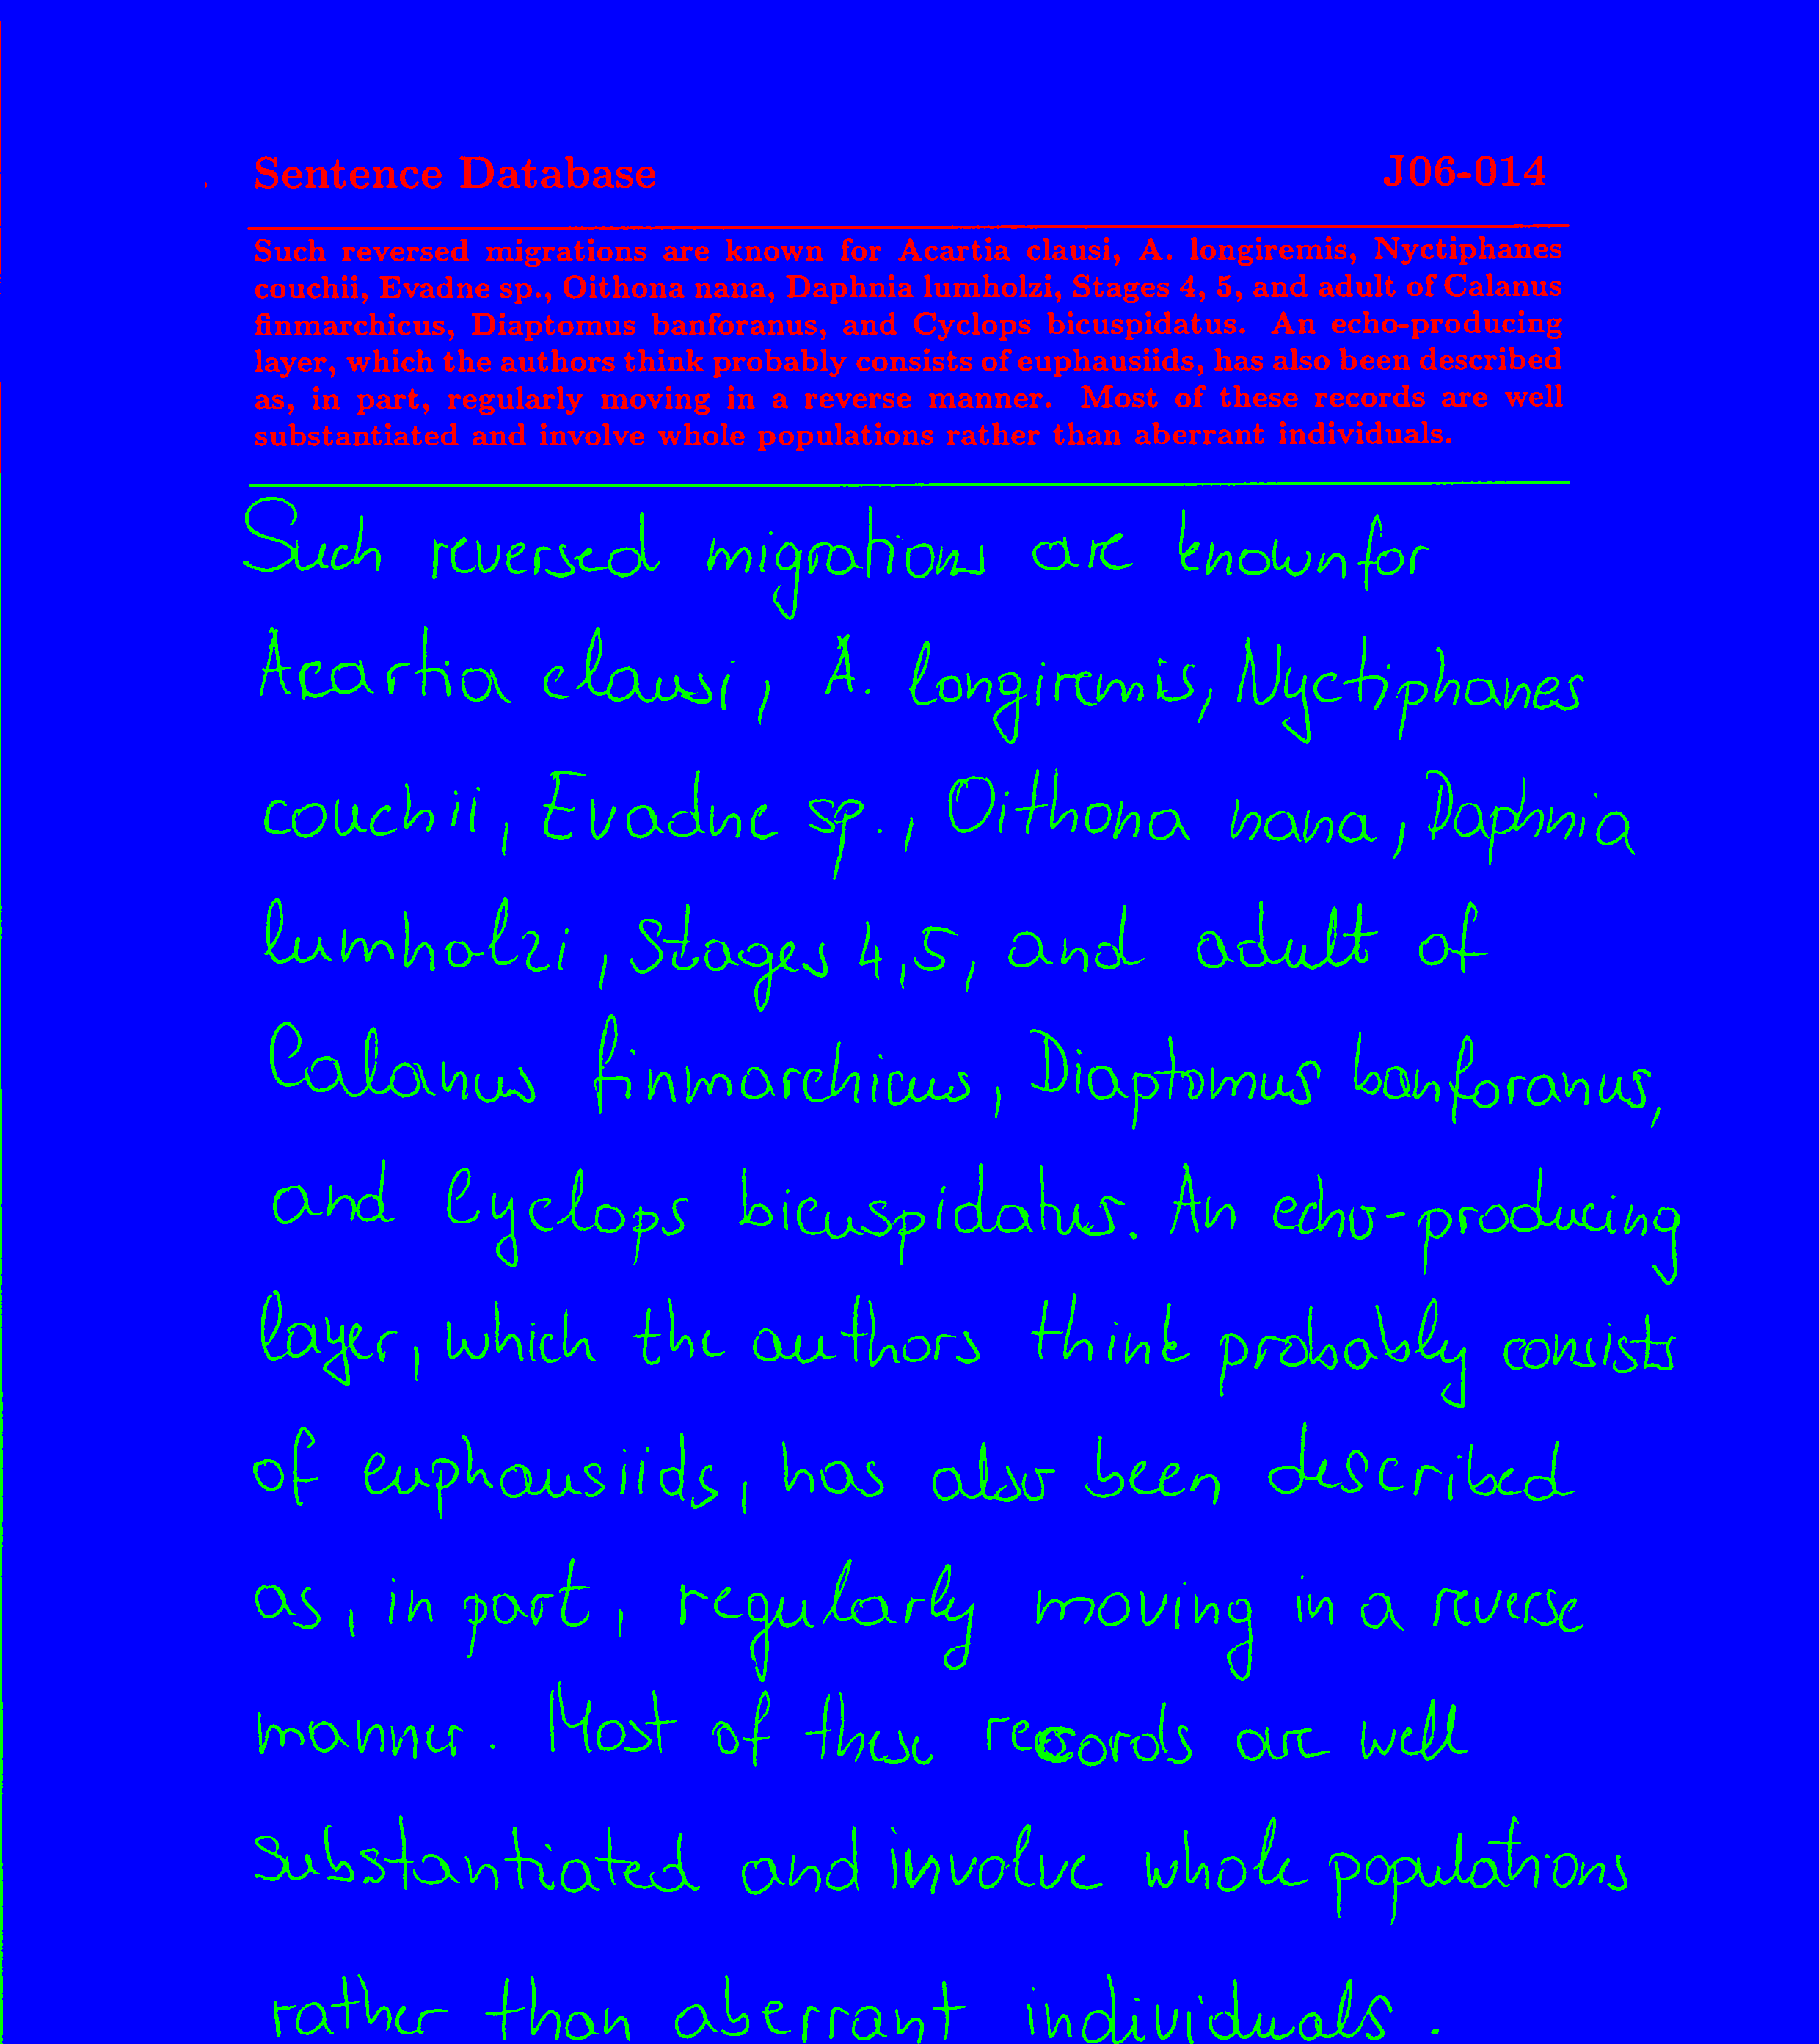 Sentence Database J06-014
Such reversed migrations are known for Acartia clausi, A. longiremis, Nyctiphanes
couchii, Evadne sp., Oithona nana, Daphnia lumholzi, Stages 4, 5, and adult of Calanus
finmarchicus, Diaptomus banforanus, and Cyclops bicuspidatus. An echo-producing
layer, which the authors think probably consists of euphausiids, has also been described
as, in part, regularly moving in a reverse manner. Most of these records are well
substantiated and involve whole populations rather than aberrant individuals.
Such reversed migrations are known for
Acartia clausi, A. longiremis, Nyctiphanes
couchii, Evadne sp., Oithona nana, Daphnia
lumholzi, Stages 4,5, and adult of
Calanus finmarchicus, Diaptomus banforanus,
and Cyclops bicuspidatus. An echo-producing
layer, which the authors think probably consists
of euphausiids, has also been described
as, in part, regularly moving in a reverse
manner. Most of these records are well
substantiated and involve whole populations
rather than aberrant individuals.